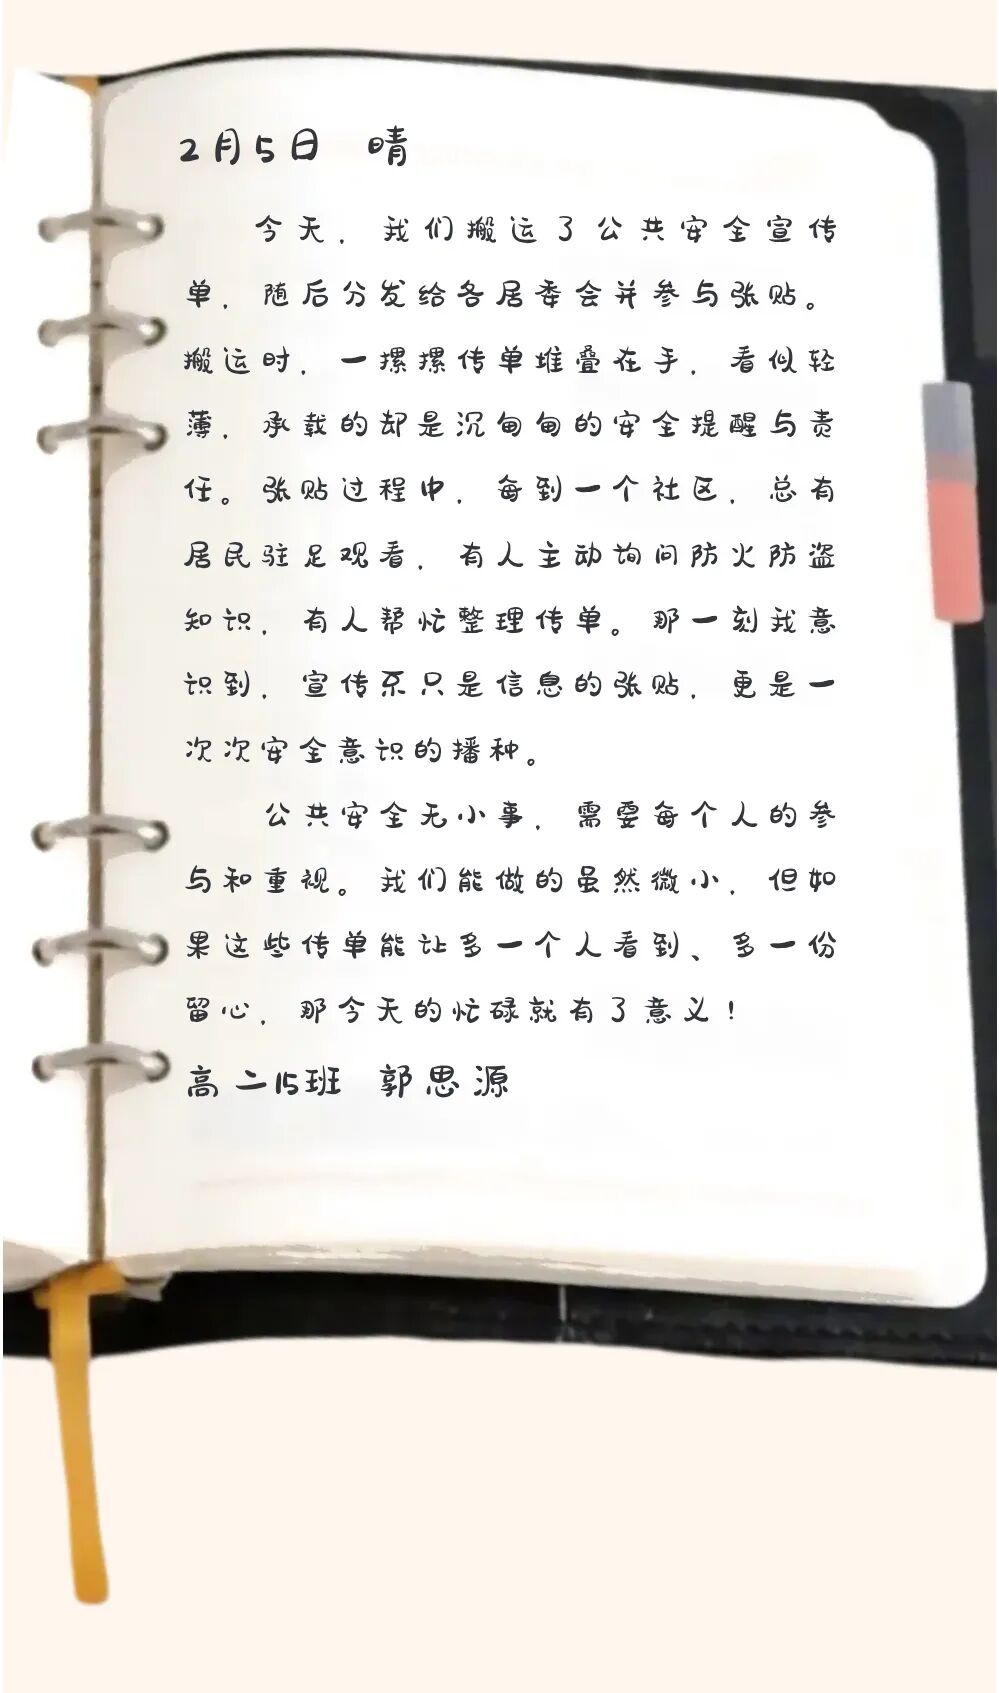 2月5日 晴
今天，我们搬运了公共安全宣传
单，随后分发给各居委会并参与张贴。
搬运时，一摞摞传单堆叠在手，看似轻
薄，承载的却是沉甸甸的安全提醒与责
任。张贴过程中，每到一个社区，总有
居民驻足观看，有人主动询问防火防盗
知识，有人帮忙整理传单。那一刻我意
识到，宣传不只是信息的张贴，更是一
次次安全意识的播种。
公共安全无小事，需要每个人的参
与和重视。我们能做的虽然微小，但如
果这些传单能让多一个人看到、多一份
留心，那今天的忙碌就有了意义！
高二15班 郭思源